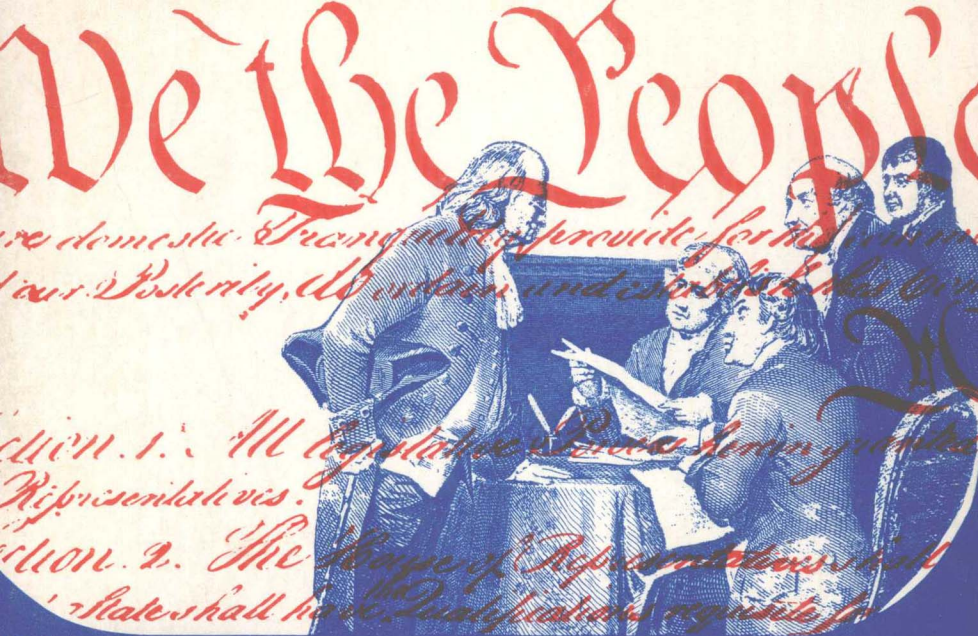 We the People
domestic Tranquility, provide for the common
our Posterity, do ordain and establish this
ction. 1. All legislative Powers herein granted
Representatives.
ction. 2. The House of Representatives shall
State shall have the Qualifications requisite for